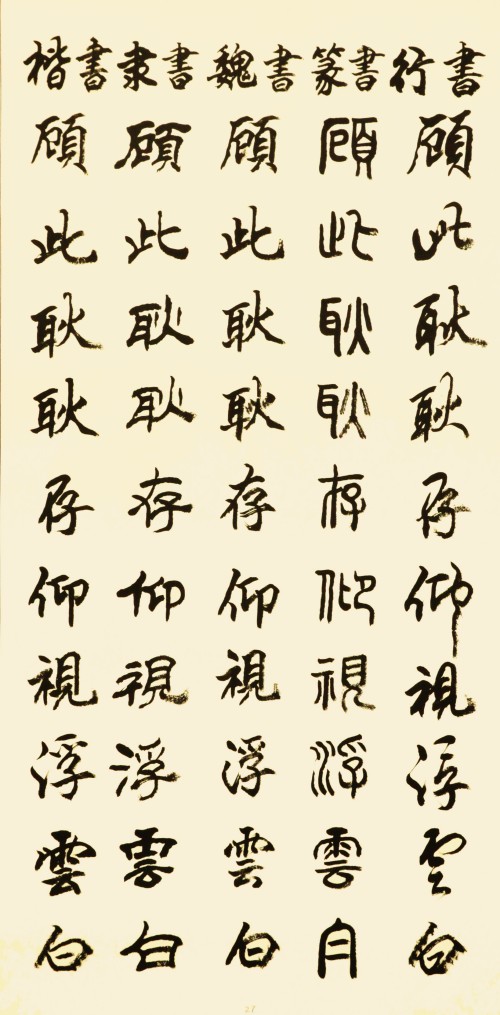 楷書 隶書 魏書 篆書 行書
顾 顾 顾 顧 顾
此 此 此 此 此
耿 耿 耿 耿 耿
耿 耿 耿 耿 耿
存 存 存 存 存
仰 仰 仰 仰 仰
視 視 視 視 視
浮 浮 浮 浮 浮
雲 雲 雲 雲 雲
白 白 白 白 白
28